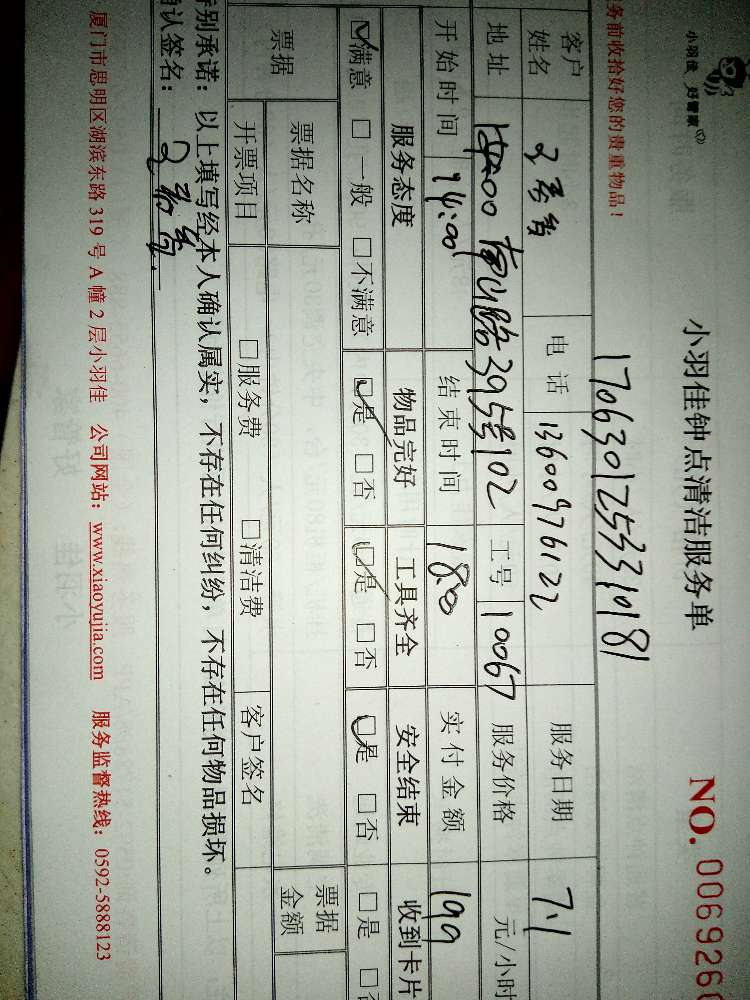 小羽佳 好管家
小羽佳钟点清洁服务单
NO. 0069260
务前收拾好您的贵重物品！
17063012533 10181
客户姓名 电话 13600976122 服务日期 7.1
地址 南山路395号102 工号 10067 服务价格 元/小时
开始时间 14:00 结束时间 18:00 实付金额 199
服务态度 物品完好 工具齐全 安全结束 收到卡片
☑满意 □一般 □不满意 ☑是 □否 ☑是 □否 ☑是 □否 □是 □否
票据 票据名称 票据金额
开票项目 □服务费 □清洁费 客户签名
特别承诺：以上填写经本人确认属实，不存在任何纠纷，不存在任何物品损坏。
确认签名：
厦门市思明区湖滨东路 319 号 A 幢 2 层小羽佳 公司网站：www.xiaoyujia.com 服务监督热线：0592-5888123